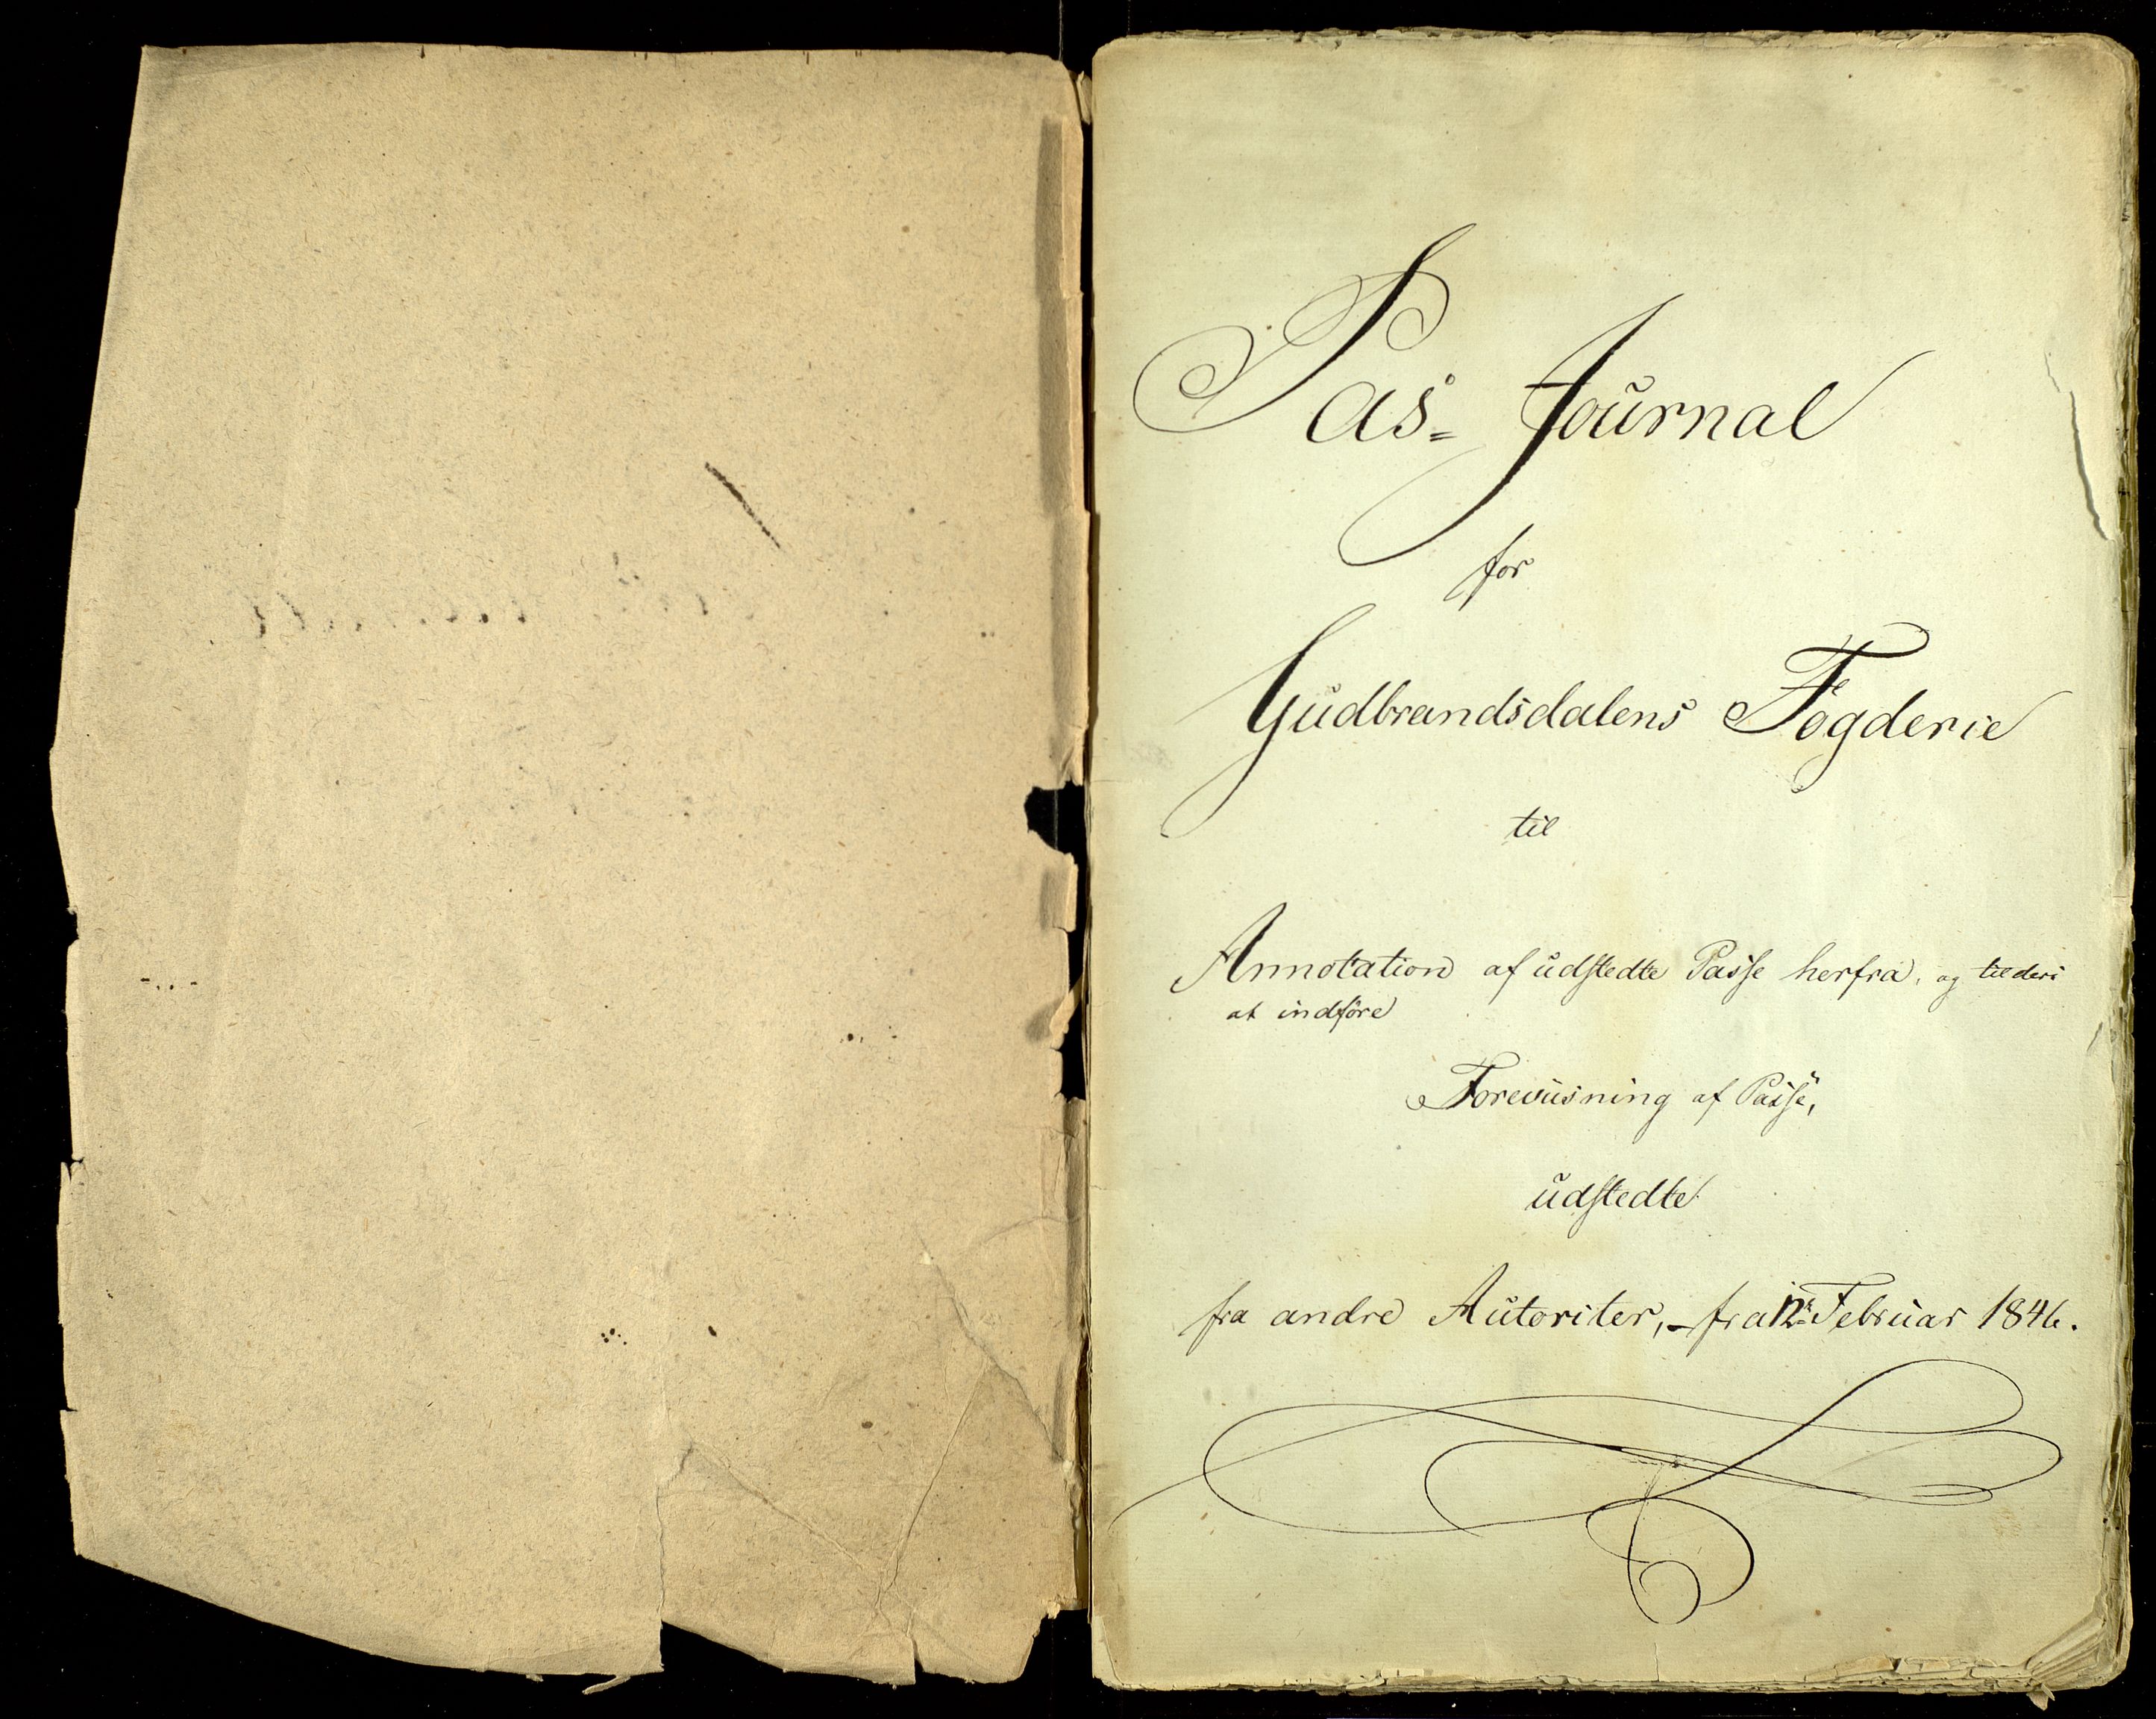 Pas= Journal
for
Gudbrandsdalens Fogderie
til
Annotation af udstedte Passe herfra, og til deri
at indføre
Foreviisning af Passe,
udstedte
fra andre Autoriter, - fra 12te Februar 1846.